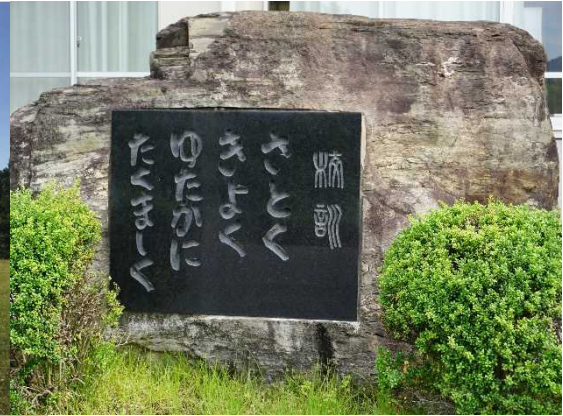 校訓
さとく
きよく
ゆたかに
たくましく